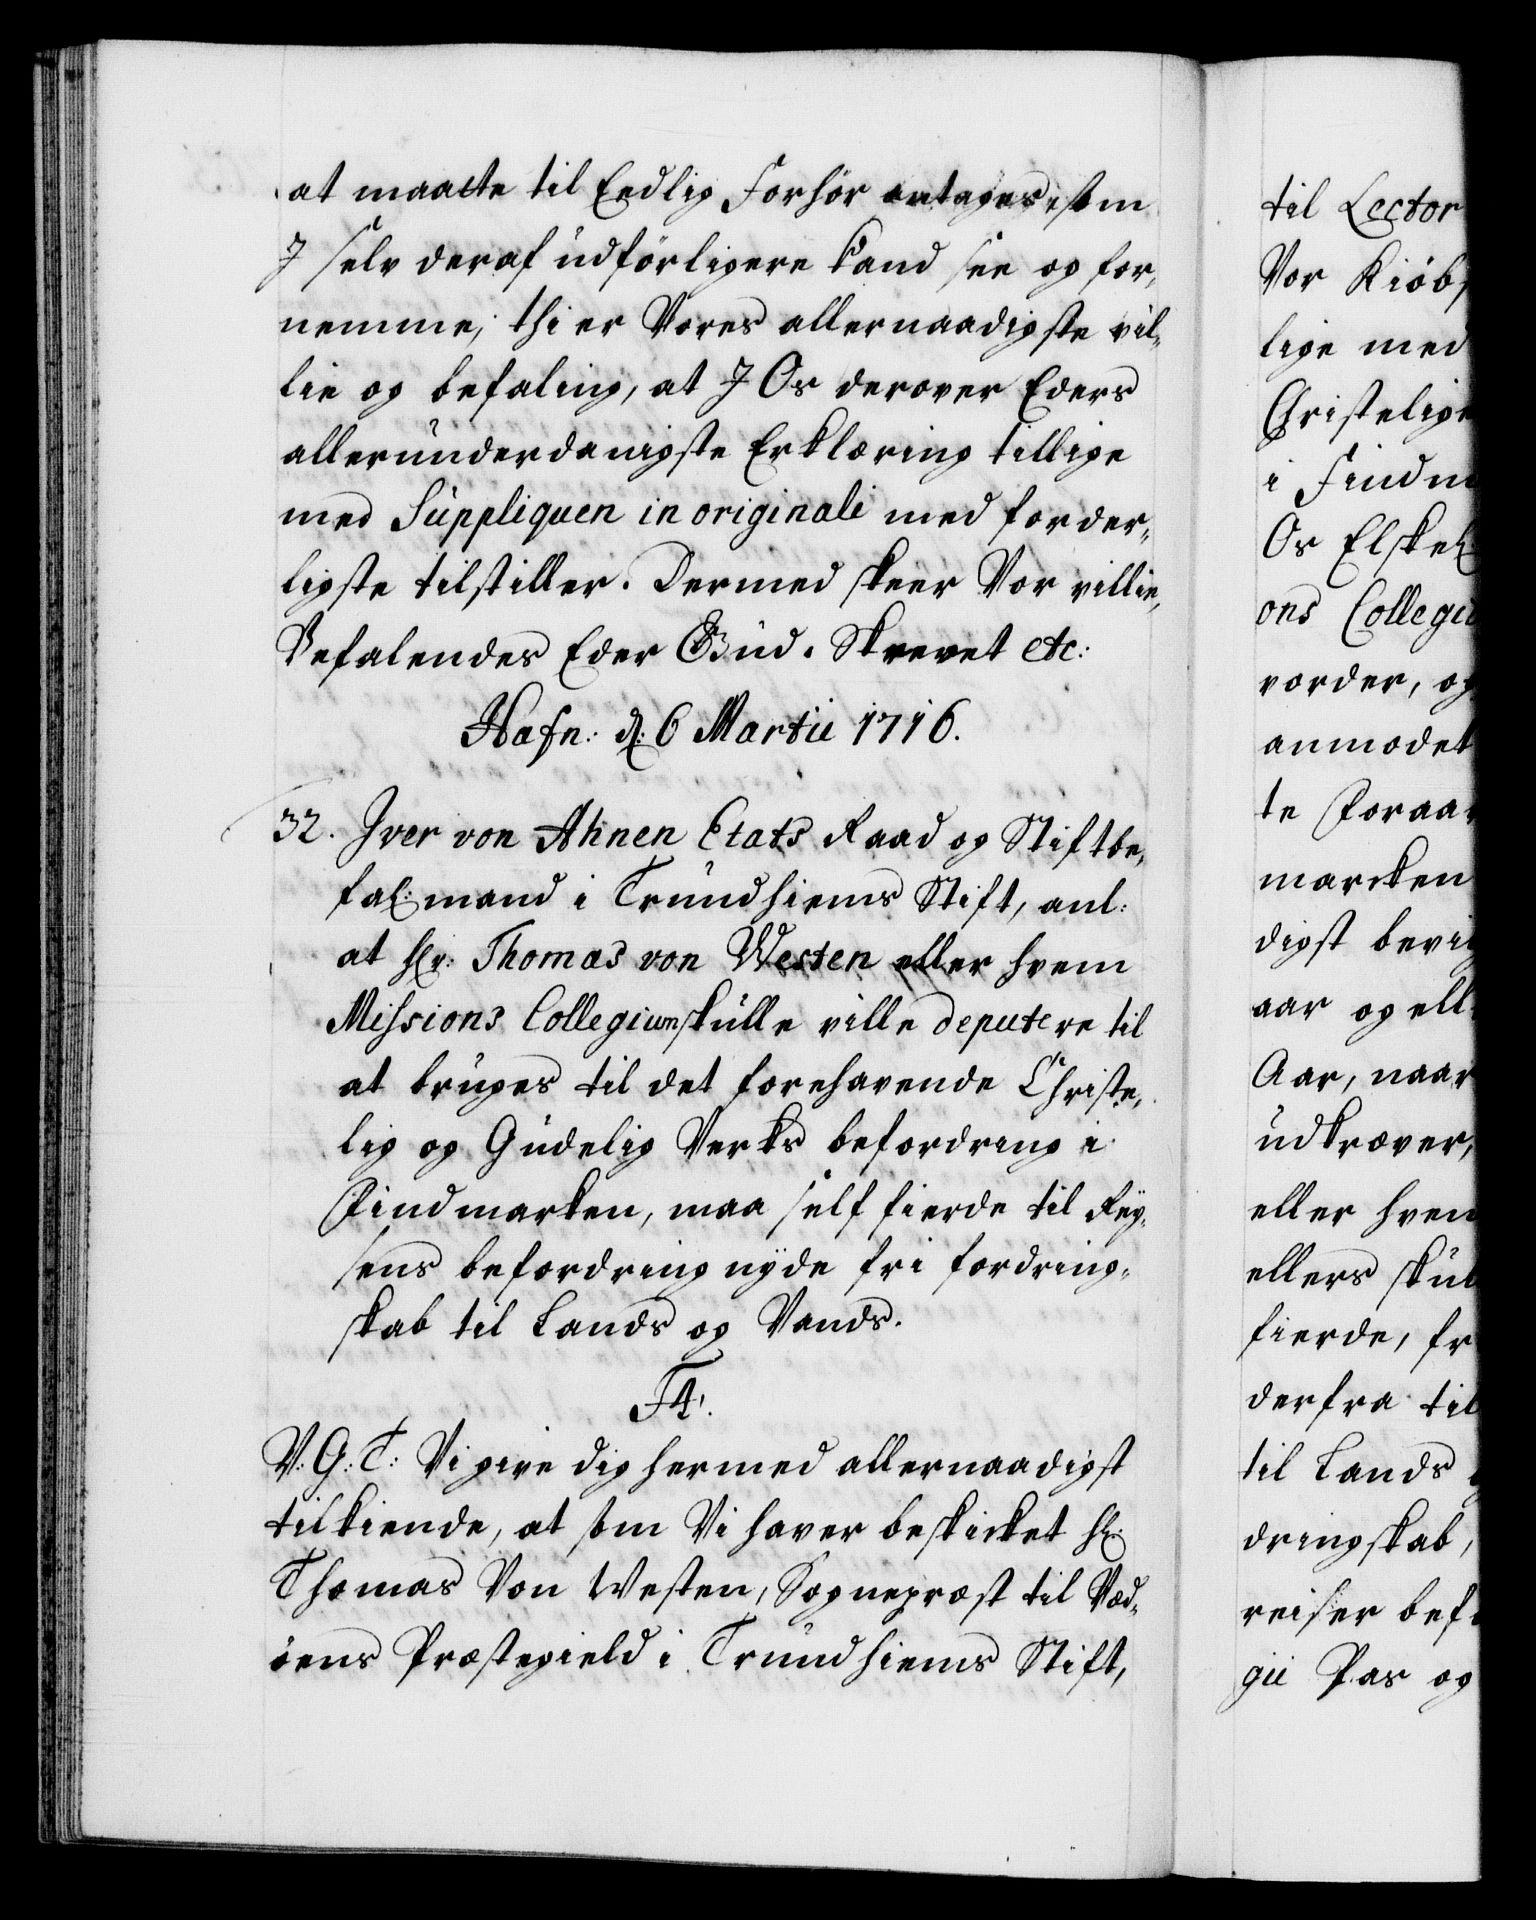 at maatte til Eedlig Forhör antages, som
J selv deraf udförligere kand see og for,
nemme; thi er Vores allernaadigste vil,
lie og befaling, at J Os derover Eders
allerunderdanigste Erklæring tillige
med Suppliquen in originali med forder,
ligste tilstiller. Dermed skeer Vor villie,
Befalendes Eder Gud. Skrevet etc:
Hafn: d: 6 Martii 1716.
32. Jver von Ahnen Etats Raad og Stiftbe,
fal: mand i Trundhiems Stift, anl:
at Hr: Thomas von Westen eller hvem
Missions Collegium skulle ville deputere til
at bruges til det forehavende Christe,
lig og Gudelig Verks befordring i
Findmarken, maa self fierde til Rey,
sens befordring nyde fri fordring,
skab til Lands og Vands.
F4.
V: G: T: Vi give dig hermed allernaadigst
tilkiende, at som Vi haver beskicket Hr:
Thomas Von Westen, Sognepræst til Væd,
öens Præstegield i Trundhiems Stift,
til Lector
Vor Kiöb,
lige med
Christelige
i Findm
Os Elskel:
ons Collegi
vorder, og
anmodet
te Foraar
marcken
digst bevil
aar og ell
Aar, naar
udkræver,
eller hvem
ellers skul
fierde, fr
derfra til
til Lands
dringskab,
reiser bef
gii Pas og